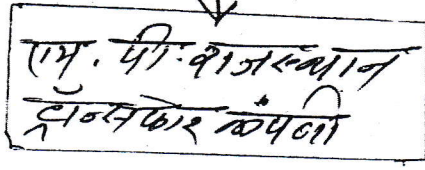 एम. पी. राजस्थान
ट्रॅान्सपोर कंपनी